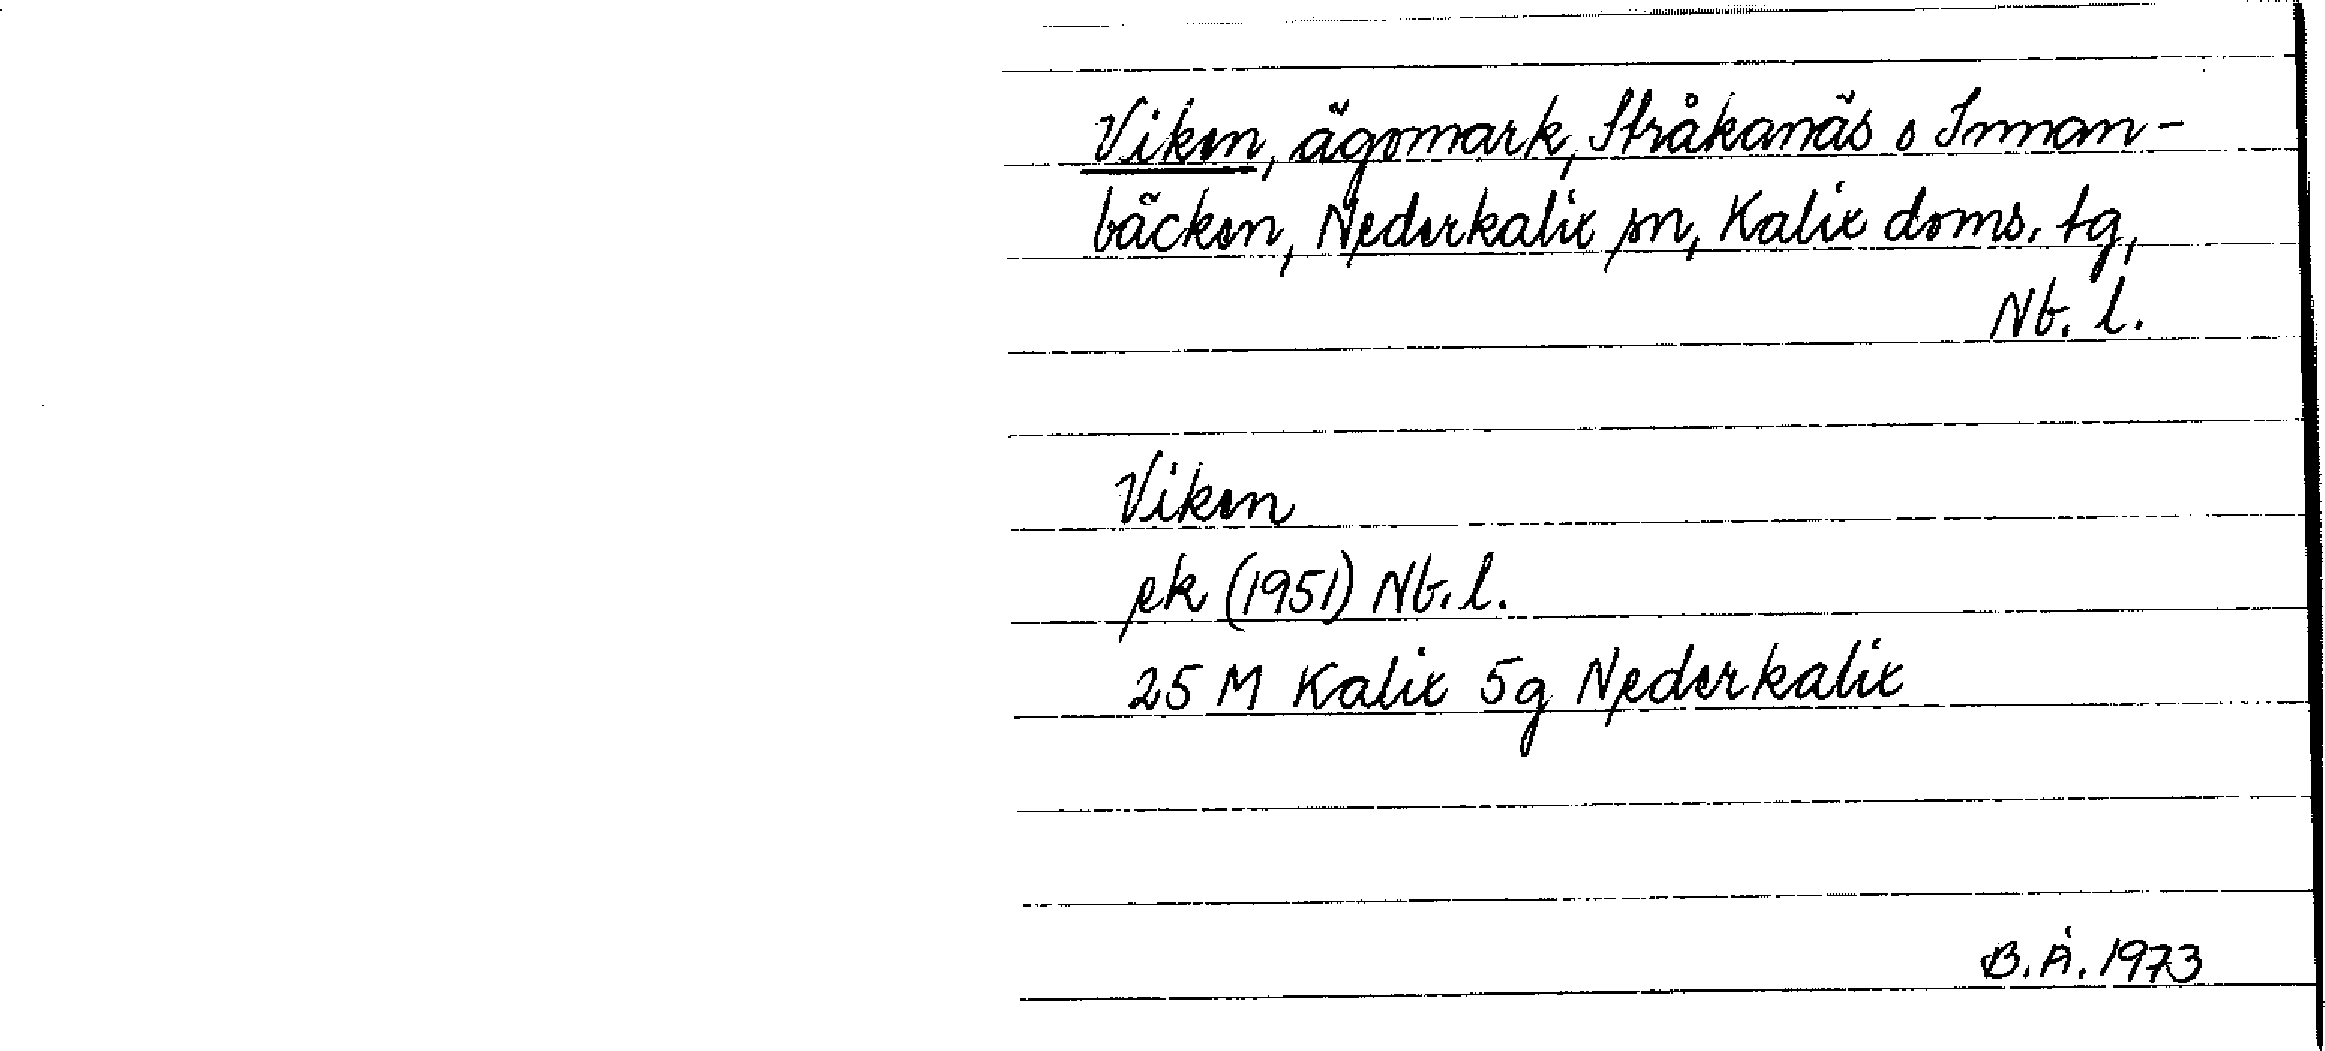 Viken, ägomark, Stråkanäs o Innan-
bäcken, Nederkalix sn, Kalix doms. tg,
Nb. l.
Viken
ek (1951) Nb. l.
25 M Kalix 5g Nederkalix
B. Å. 1973